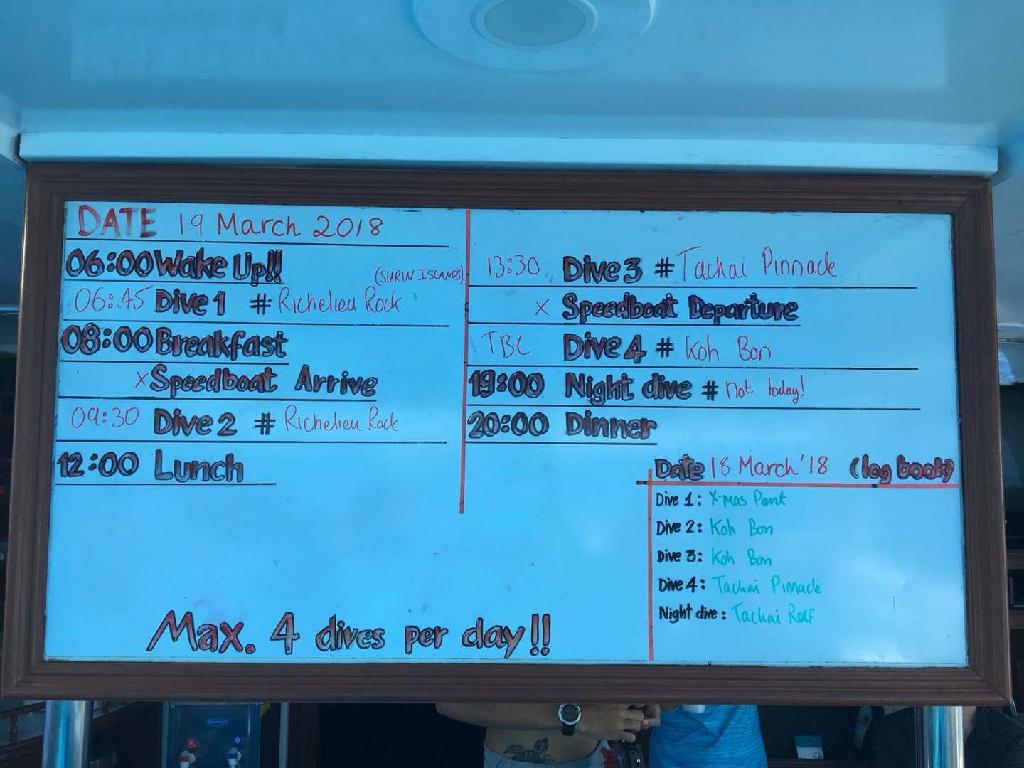 DATE 19 March 2018
06:00 Wake Up!!
(SURIN ISLANDS)
06:45 Dive 1 # Richelieu Rock
08:00 Breakfast
x Speedboat Arrive
09:30 Dive 2 # Richelieu Rock
12:00 Lunch
13:30 Dive 3 # Tachai Pinnacle
x Speedboat Departure
TBC Dive 4 # Koh Bon
19:00 Night dive # Not today!
20:00 Dinner
Date 18 March '18 (log book)
Dive 1: X-mas Point
Dive 2: Koh Bon
Dive 3: Koh Bon
Dive 4: Tachai Pinnacle
Night dive: Tachai Reef
Max. 4 dives per day!!